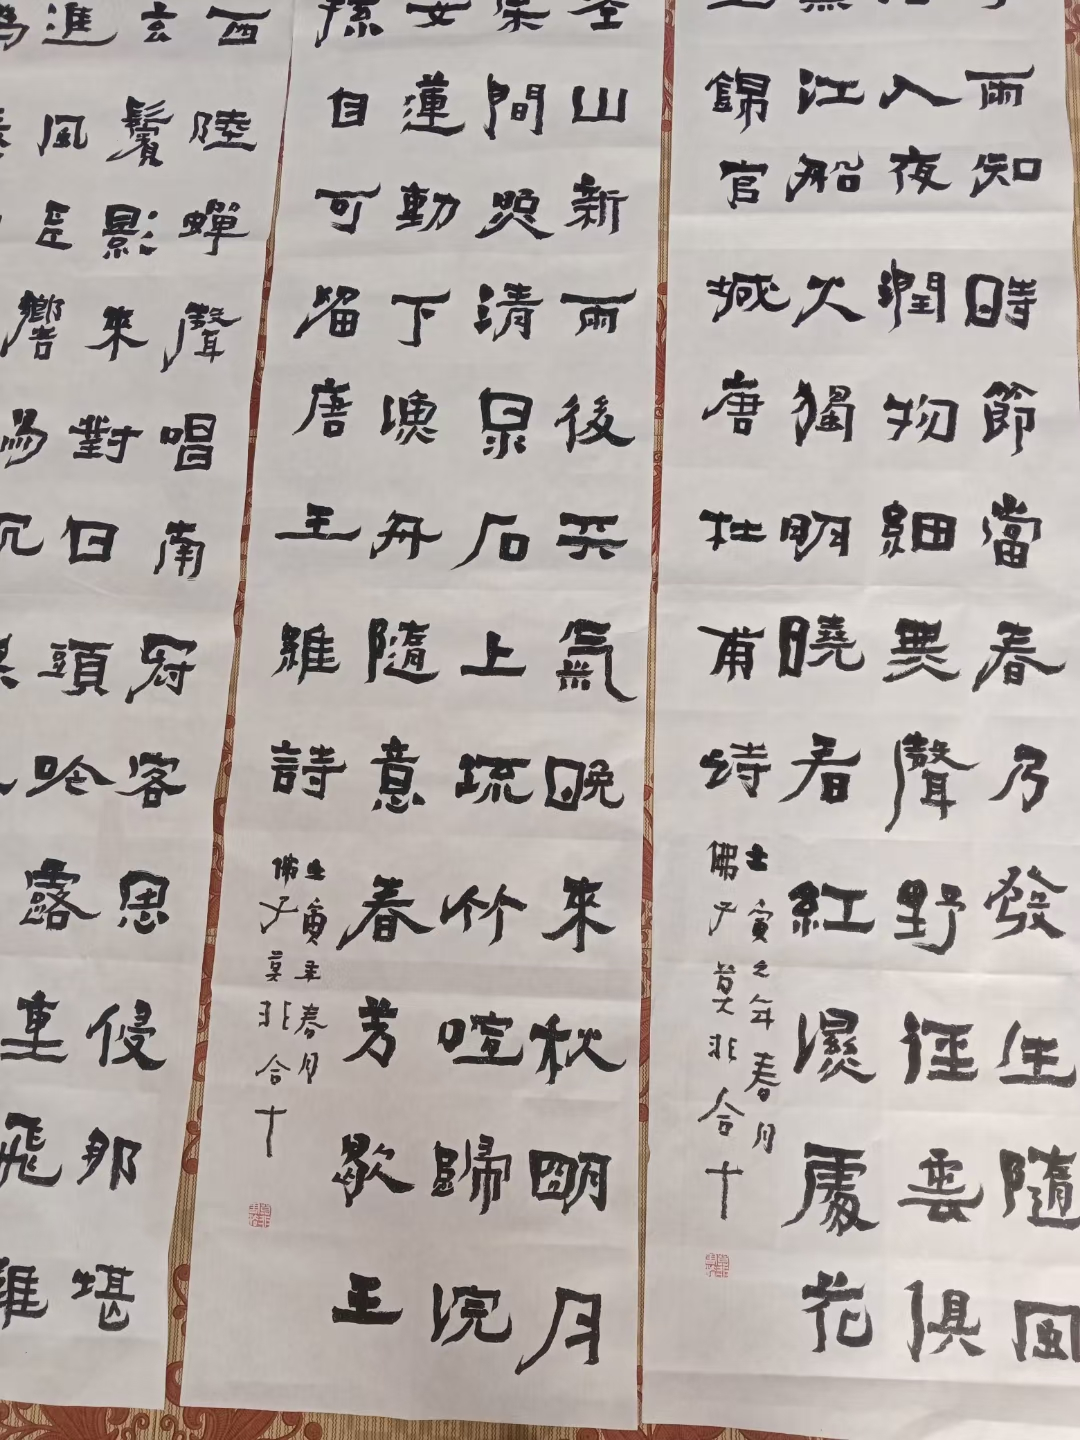 雨知時節當春乃發生隨風
入夜潤物細無聲野徑雲俱
江船火獨明曉看紅濕處花
錦官城唐杜甫詩
壬寅之年春月
佛子莫非合十
空山新雨後天氣晚來秋明月
間照清泉石上流竹喧歸浣
女蓮動下漁舟隨意春芳歇王
孫自可留唐王維詩
壬寅年春月
佛子莫非合十
西陸蟬聲唱南冠客思侵那堪
玄鬢影來對白頭吟露重飛難
進風多響易沉